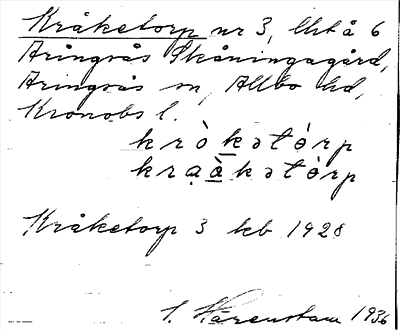 Kråketorp nr 3, lht å 6
Aringsås Skåningagård,
Aringsås sn, Allbo hd,
Kronobs l.
krò̱kǝtórp
kra̤ò̱kǝtòrp
Kråketorp 3 kb 1928
1936